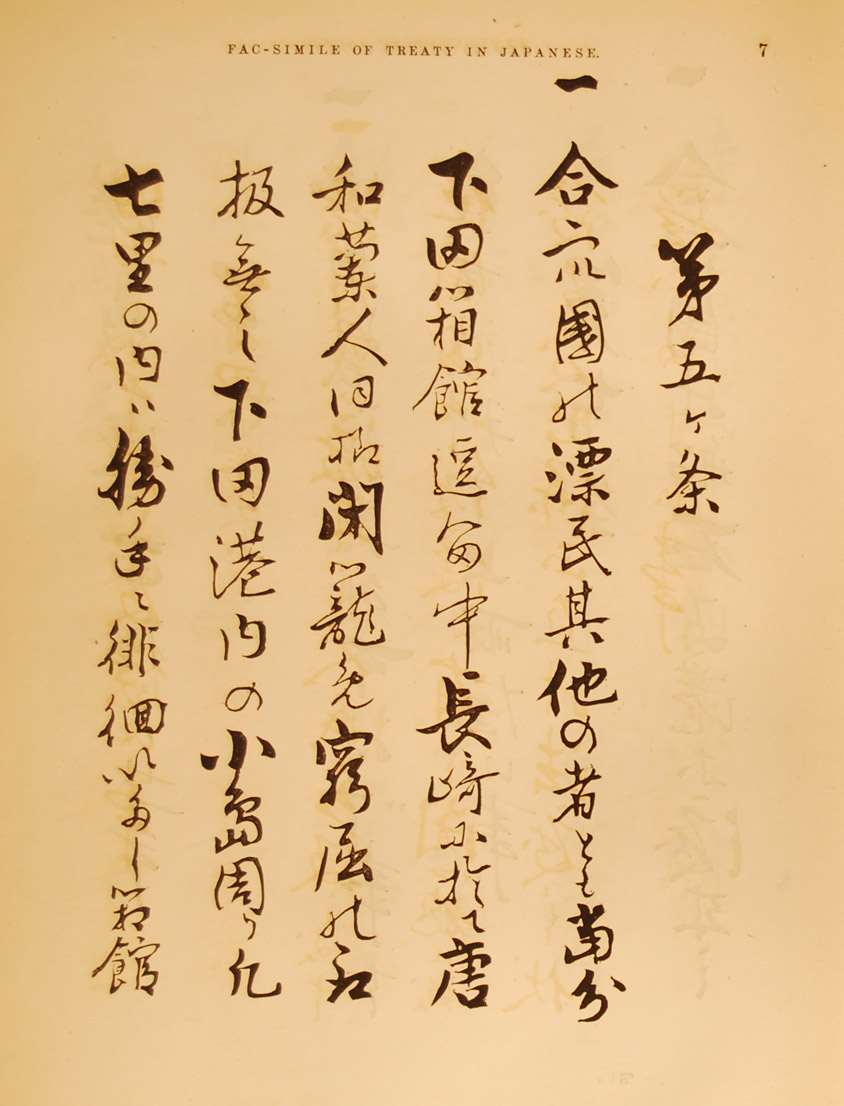 FAC-SIMILE OF TREATY IN JAPANESE.
7
第五ヶ条
一 合衆國の漂民其他の者とも當分
下田箱館逗留中長崎に於て唐
和蘭人同様閉籠め窮屈の取
扱無之下田港内の小島周り凡
七里の内ハ勝手ニ徘徊いたし箱館